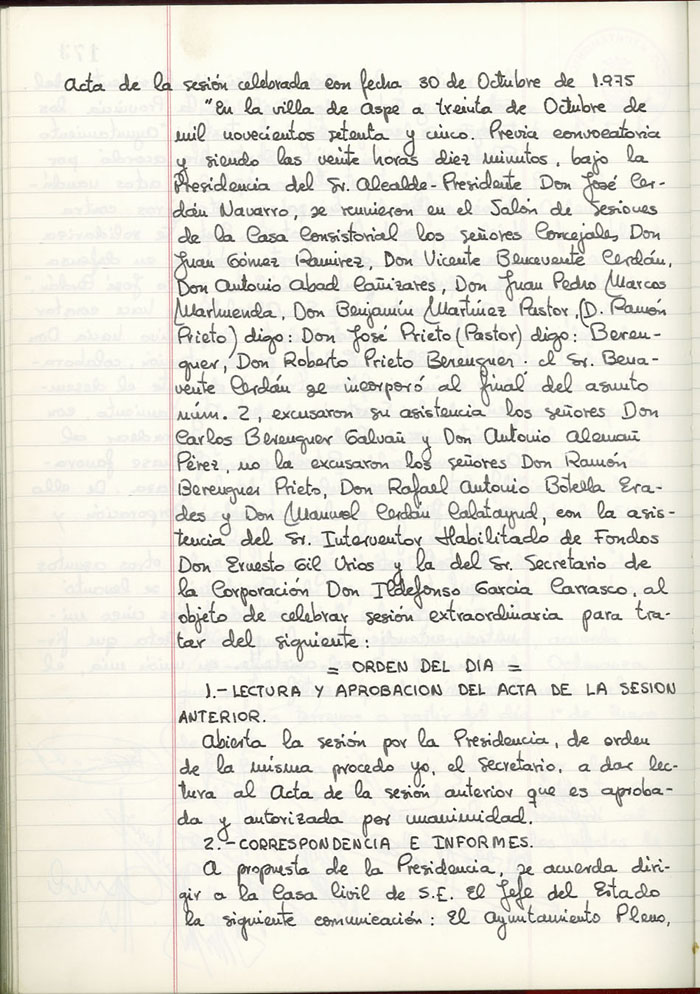 Acta de la sesión celebrada con fecha 30 de Octubre de 1.975
"En la villa de Aspe a treinta de Octubre de
mil novecientos setenta y cinco. Previa convocatoria
y siendo las veinte horas diez minutos, bajo la
Presidencia del Sr. Alcalde-Presidente Don José Cer-
dán Navarro, se reunieron en el Salón de Sesiones
de la Casa Consistorial los señores Concejales, Don
Juan Gómez Ramirez, Don Vicente Benavente Cerdán,
Don Antonio Abad Cañizares, Don Juan Pedro Marcos
Marhuenda, Don Benjamín Martínez Pastor, (D. Ramón
Prieto) digo: Don José Prieto (Pastor) digo: Beren-
guer, Don Roberto Prieto Berenguer: el Sr. Bena-
vente Cerdán se incorporó al final del asunto
núm. 2, excusaron su asistencia los señores Don
Carlos Berenguer Galvañ y Don Antonio Alemañ
Pérez, no la excusaron los señores Don Ramón
Berenguer Prieto, Don Rafael Antonio Botella Era-
des y Don Manuel Cerdán Calatayud, con la asis-
tencia del Sr. Interventor Habilitado de Fondos
Don Ernesto Gil Urios y la del Sr. Secretario de
la Corporación Don Ildefonso Garcia Carrasco, al
objeto de celebrar sesión extraordinaria para tra-
tar del siguiente:
= ORDEN DEL DIA =
1.- LECTURA Y APROBACION DEL ACTA DE LA SESION
ANTERIOR.
Abierta la sesión por la Presidencia, de orden
de la misma procedo yo, el Secretario, a dar lec-
tura al Acta de la sesión anterior que es aproba-
da y autorizada por unanimidad.
2.- CORRESPONDENCIA E INFORMES.
A propuesta de la Presidencia, se acuerda diri-
gir a la Casa Civil de S.E. El Jefe del Estado
la siguiente comunicación: El Ayuntamiento Pleno,